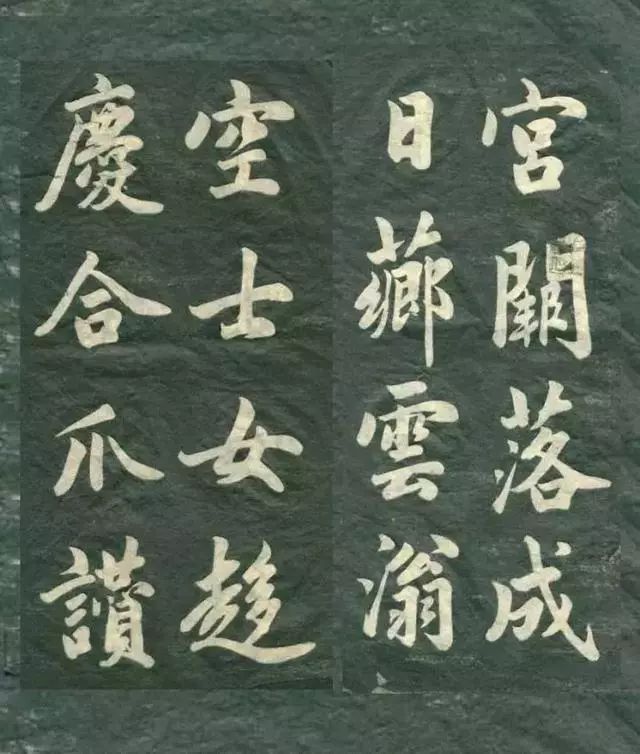 宮闕落成
日薌雲滃
空士女趍
慶合爪讚